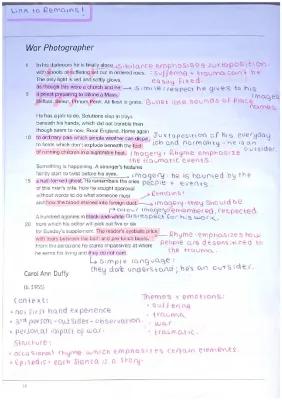 Link to Remains!
War Photographer
In his darkroom he is finally alone
with spools of suffering set out in ordered rows.
The only light is red and softly glows,
as though this were a church and he
5 a priest preparing to intone a Mass.
Belfast. Beirut. Phnom Penh. All flesh is grass.
sibilance emphasises juxtaposition
: suffering + trauma can't be
easily fixed.
simile: respect he gives to his
images
Bullet like sounds of place
names.
He has a job to do. Solutions slop in trays
beneath his hands, which did not tremble then
though seem to now. Rural England. Home again
10 to ordinary pain which simple weather can dispel,
to fields which don't explode beneath the feet
of running children in a nightmare heat.
Juxtaposition of his everyday
job and normality - he is an
outsider.
imagery + Rhyme emphasize
the traumatic events.
Something is happening. A stranger's features
faintly start to twist before his eyes,
15 a half-formed ghost. He remembers the cries
of this man's wife, how he sought approval
without words to do what someone must
and how the blood stained into foreign dust.
imagery: he is haunted by the
people + events.
remains!
imagery: they should be
remembered, respected.
colour imagery
A hundred agonies in black-and-white
20 from which his editor will pick out five or six
for Sunday's supplement. The reader's eyeballs prick
with tears between the bath and pre-lunch beers.
From the aeroplane he stares impassively at where
he earns his living and they do not care.
disrespect for his work.
Rhyme- emphasizes how
people are desensitized to
the trauma.
simple language:
they don't understand; he's an outsider.
Carol Ann Duffy
(b. 1955)
Context:
• has first hand experience
• 3rd person - outsider - observation.
• personal impact of war.
Structure:
• occasional rhyme which emphasizes certain elements.
• Episodic - each stanza is a story.
Themes + emotions:
• suffering
• trauma
• war
• traumatic.